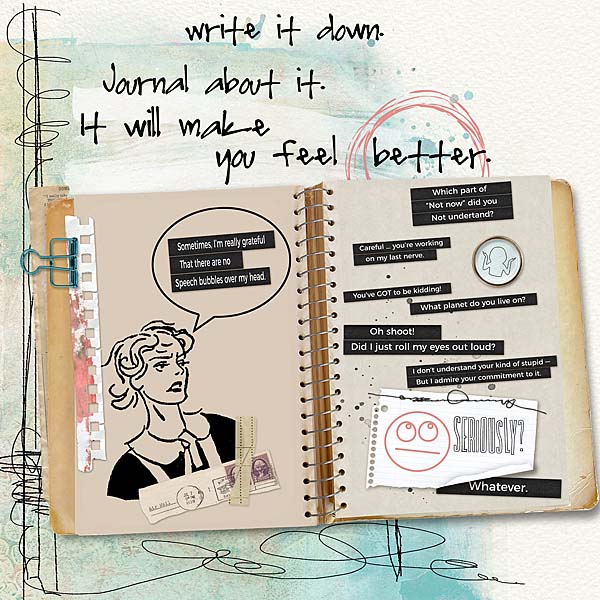 write it down.
Journal about it.
It will make
you feel better.
Sometimes, I'm really grateful
That there are no
Speech bubbles over my head.
Which part of
"Not now" did you
Not undertand?
Careful ... you're working
on my last nerve.
You've GOT to be kidding!
What planet do you live on?
Oh shoot!
Did I just roll my eyes out loud?
I don't understand your kind of stupid –
But I admire your commitment to it.
SERIOUSLY?
Whatever.